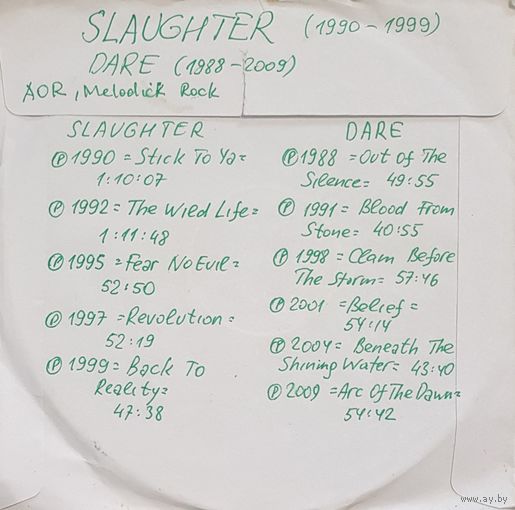 SLAUGHTER (1990-1999)
DARE (1988-2009)
AOR, Melodick Rock
SLAUGHTER
℗ 1990 = Stick To Ya=
1:10:07
℗ 1992 = The Wild Life=
1:11:48
℗ 1995 = Fear No Evil=
52:50
℗ 1997 = Revolution =
52:19
℗ 1999 = Back To
Reality=
47:38
DARE
℗ 1988 = Out Of The
Silence= 49:55
℗ 1991 = Blood From
Stone= 40:55
℗ 1998 = Clam Before
The Storm= 57:46
℗ 2001 = Belief =
54:14
℗ 2004 = Beneath The
Shining Water= 43:40
℗ 2009 = Arc Of The Dawn=
54:42
www.ay.by